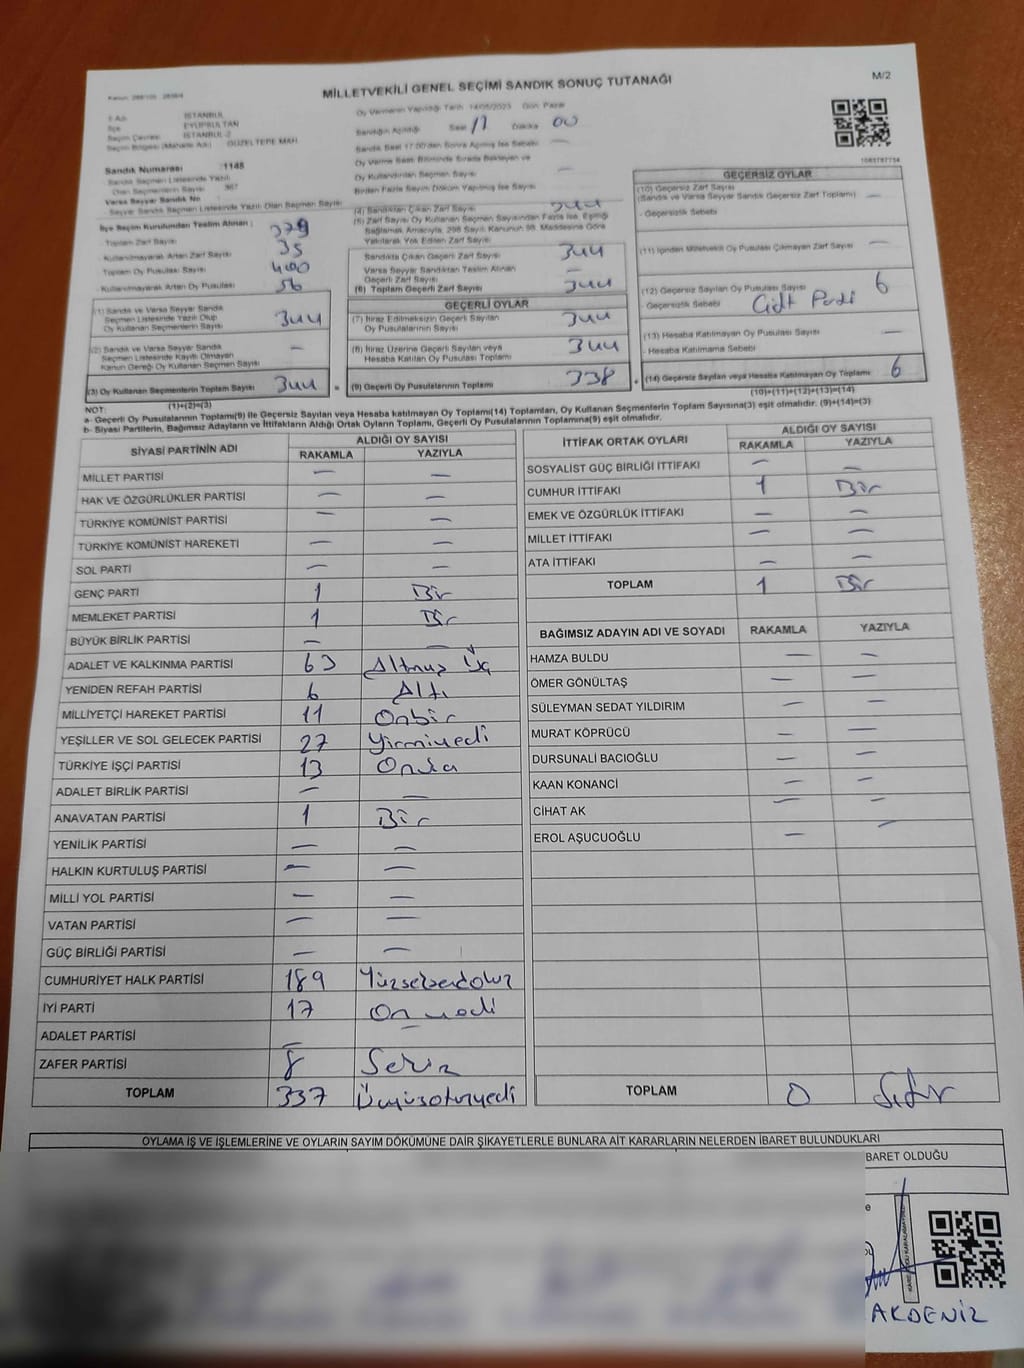 MİLLETVEKİLİ GENEL SEÇİMİ SANDIK SONUÇ TUTANAĞI
M/2
İSTANBUL
Oy Vermenin Yapıldığı Tarih 14/05/2023 Gün Pazar
EYÜPSULTAN
İSTANBUL-2
Sandığın Açıldığı Saat 17 Dakika 00
GÜZELTEPE MAH
Sandık Saat 17:00'den Sonra Açılmış İse Sebebi —
Sandık Numarası 1148
Oy Kullandırılan Seçmen Sayısı —
Birden Fazla Sayım Döküm Yapılmış İse Sayısı
Sandık Seçmen Listesinde Yazılı
Olan Seçmenlerin Sayısı 367
Varsa Seyyar Sandık No
Seyyar Sandık Seçmen Listesinde Yazılı Olan Seçmen Sayısı
İlçe Seçim Kurulundan Teslim Alınan ;
- Toplam Zarf Sayısı 379
- Kullanılmayarak Artan Zarf Sayısı 35
Toplam Oy Pusulası Sayısı 400
- Kullanılmayarak Artan Oy Pusulası 56
(1) Sandık ve Varsa Seyyar Sandık
Seçmen Listesinde Yazılı Olup
Oy Kullanan Seçmenlerin Sayısı 344
(2) Sandık ve Varsa Seyyar Sandık
Seçmen Listesinde Kayıtlı Olmayan
Kanun Gereği Oy Kullanan Seçmen Sayısı —
(3) Oy Kullanan Seçmenlerin Toplam Sayısı 344 =
(1)+(2)=(3)
(4) Sandıktan Çıkan Zarf Sayısı 344
(5) Zarf Sayısı Oy Kullanan Seçmen Sayısından Fazla İse, Eşitliği
Sağlamak Amacıyla, 298 Sayılı Kanunun 98. Maddesine Göre
Yakılarak Yok Edilen Zarf Sayısı
Sandıkta Çıkan Geçerli Zarf Sayısı 344
Varsa Seyyar Sandıktan Teslim Alınan
Geçerli Zarf Sayısı —
(6) Toplam Geçerli Zarf Sayısı 344
GEÇERLİ OYLAR
(7) İtiraz Edilmeksizin Geçerli Sayılan
Oy Pusulalarının Sayısı 344
(8) İtiraz Üzerine Geçerli Sayılan veya
Hesaba Katılan Oy Pusulası Toplamı 344
(9) Geçerli Oy Pusulalarının Toplamı 338 +
GEÇERSİZ OYLAR
(10) Geçersiz Zarf Sayısı
(Sandık ve Varsa Seyyar Sandık Geçersiz Zarf Toplamı) —
- Geçersizlik Sebebi
(11) İçinden Milletvekili Oy Pusulası Çıkmayan Zarf Sayısı —
(12) Geçersiz Sayılan Oy Pusulası Sayısı 6
Geçersizlik Sebebi
(13) Hesaba Katılmayan Oy Pusulası Sayısı —
- Hesaba Katılmama Sebebi
(14) Geçersiz Sayılan veya Hesaba Katılmayan Oy Toplamı 6
(10)+(11)+(12)+(13)=(14)
NOT:
a- Geçerli Oy Pusulalarının Toplamı(9) ile Geçersiz Sayılan veya Hesaba katılmayan Oy Toplamı(14) Toplamları, Oy Kullanan Seçmenlerin Toplam Sayısına(3) eşit olmalıdır. (9)+(14)=(3)
b- Siyasi Partilerin, Bağımsız Adayların ve İttifakların Aldığı Ortak Oyların Toplamı, Geçerli Oy Pusulalarının Toplamına(9) eşit olmalıdır.
SİYASİ PARTİNİN ADI ALDIĞI OY SAYISI
RAKAMLA YAZIYLA
MİLLET PARTİSİ — —
HAK VE ÖZGÜRLÜKLER PARTİSİ — —
TÜRKİYE KOMÜNİST PARTİSİ — —
TÜRKİYE KOMÜNİST HAREKETİ — —
SOL PARTİ — —
GENÇ PARTİ 1 Bir
MEMLEKET PARTİSİ 1 Bir
BÜYÜK BİRLİK PARTİSİ — —
ADALET VE KALKINMA PARTİSİ 63 Altmış Üç
YENİDEN REFAH PARTİSİ 6 Altı
MİLLİYETÇİ HAREKET PARTİSİ 11 Onbir
YEŞİLLER VE SOL GELECEK PARTİSİ 27 Yirmiyedi
TÜRKİYE İŞÇİ PARTİSİ 13
ADALET BİRLİK PARTİSİ — —
ANAVATAN PARTİSİ 1 Bir
YENİLİK PARTİSİ — —
HALKIN KURTULUŞ PARTİSİ — —
MİLLİ YOL PARTİSİ — —
VATAN PARTİSİ — —
GÜÇ BİRLİĞİ PARTİSİ — —
CUMHURİYET HALK PARTİSİ 189 Yüzseksendokuz
İYİ PARTİ 17 Onyedi
ADALET PARTİSİ — —
ZAFER PARTİSİ 8 Sekiz
TOPLAM 337 Üçyüzotuzyedi
İTTİFAK ORTAK OYLARI ALDIĞI OY SAYISI
RAKAMLA YAZIYLA
SOSYALİST GÜÇ BİRLİĞİ İTTİFAKI — —
CUMHUR İTTİFAKI 1 Bir
EMEK VE ÖZGÜRLÜK İTTİFAKI — —
MİLLET İTTİFAKI — —
ATA İTTİFAKI — —
TOPLAM 1 Bir
BAĞIMSIZ ADAYIN ADI VE SOYADI RAKAMLA YAZIYLA
HAMZA BULDU — —
ÖMER GÖNÜLTAŞ — —
SÜLEYMAN SEDAT YILDIRIM — —
MURAT KÖPRÜCÜ — —
DURSUNALİ BACIOĞLU — —
KAAN KONANCİ — —
CİHAT AK — —
EROL AŞUCUOĞLU — —
TOPLAM 0 Sıfır
OYLAMA İŞ VE İŞLEMLERİNE VE OYLARIN SAYIM DÖKÜMÜNE DAİR ŞİKAYETLERLE BUNLARA AİT KARARLARIN NELERDEN İBARET BULUNDUKLARI
BARET OLDUĞU
AKDENİZ